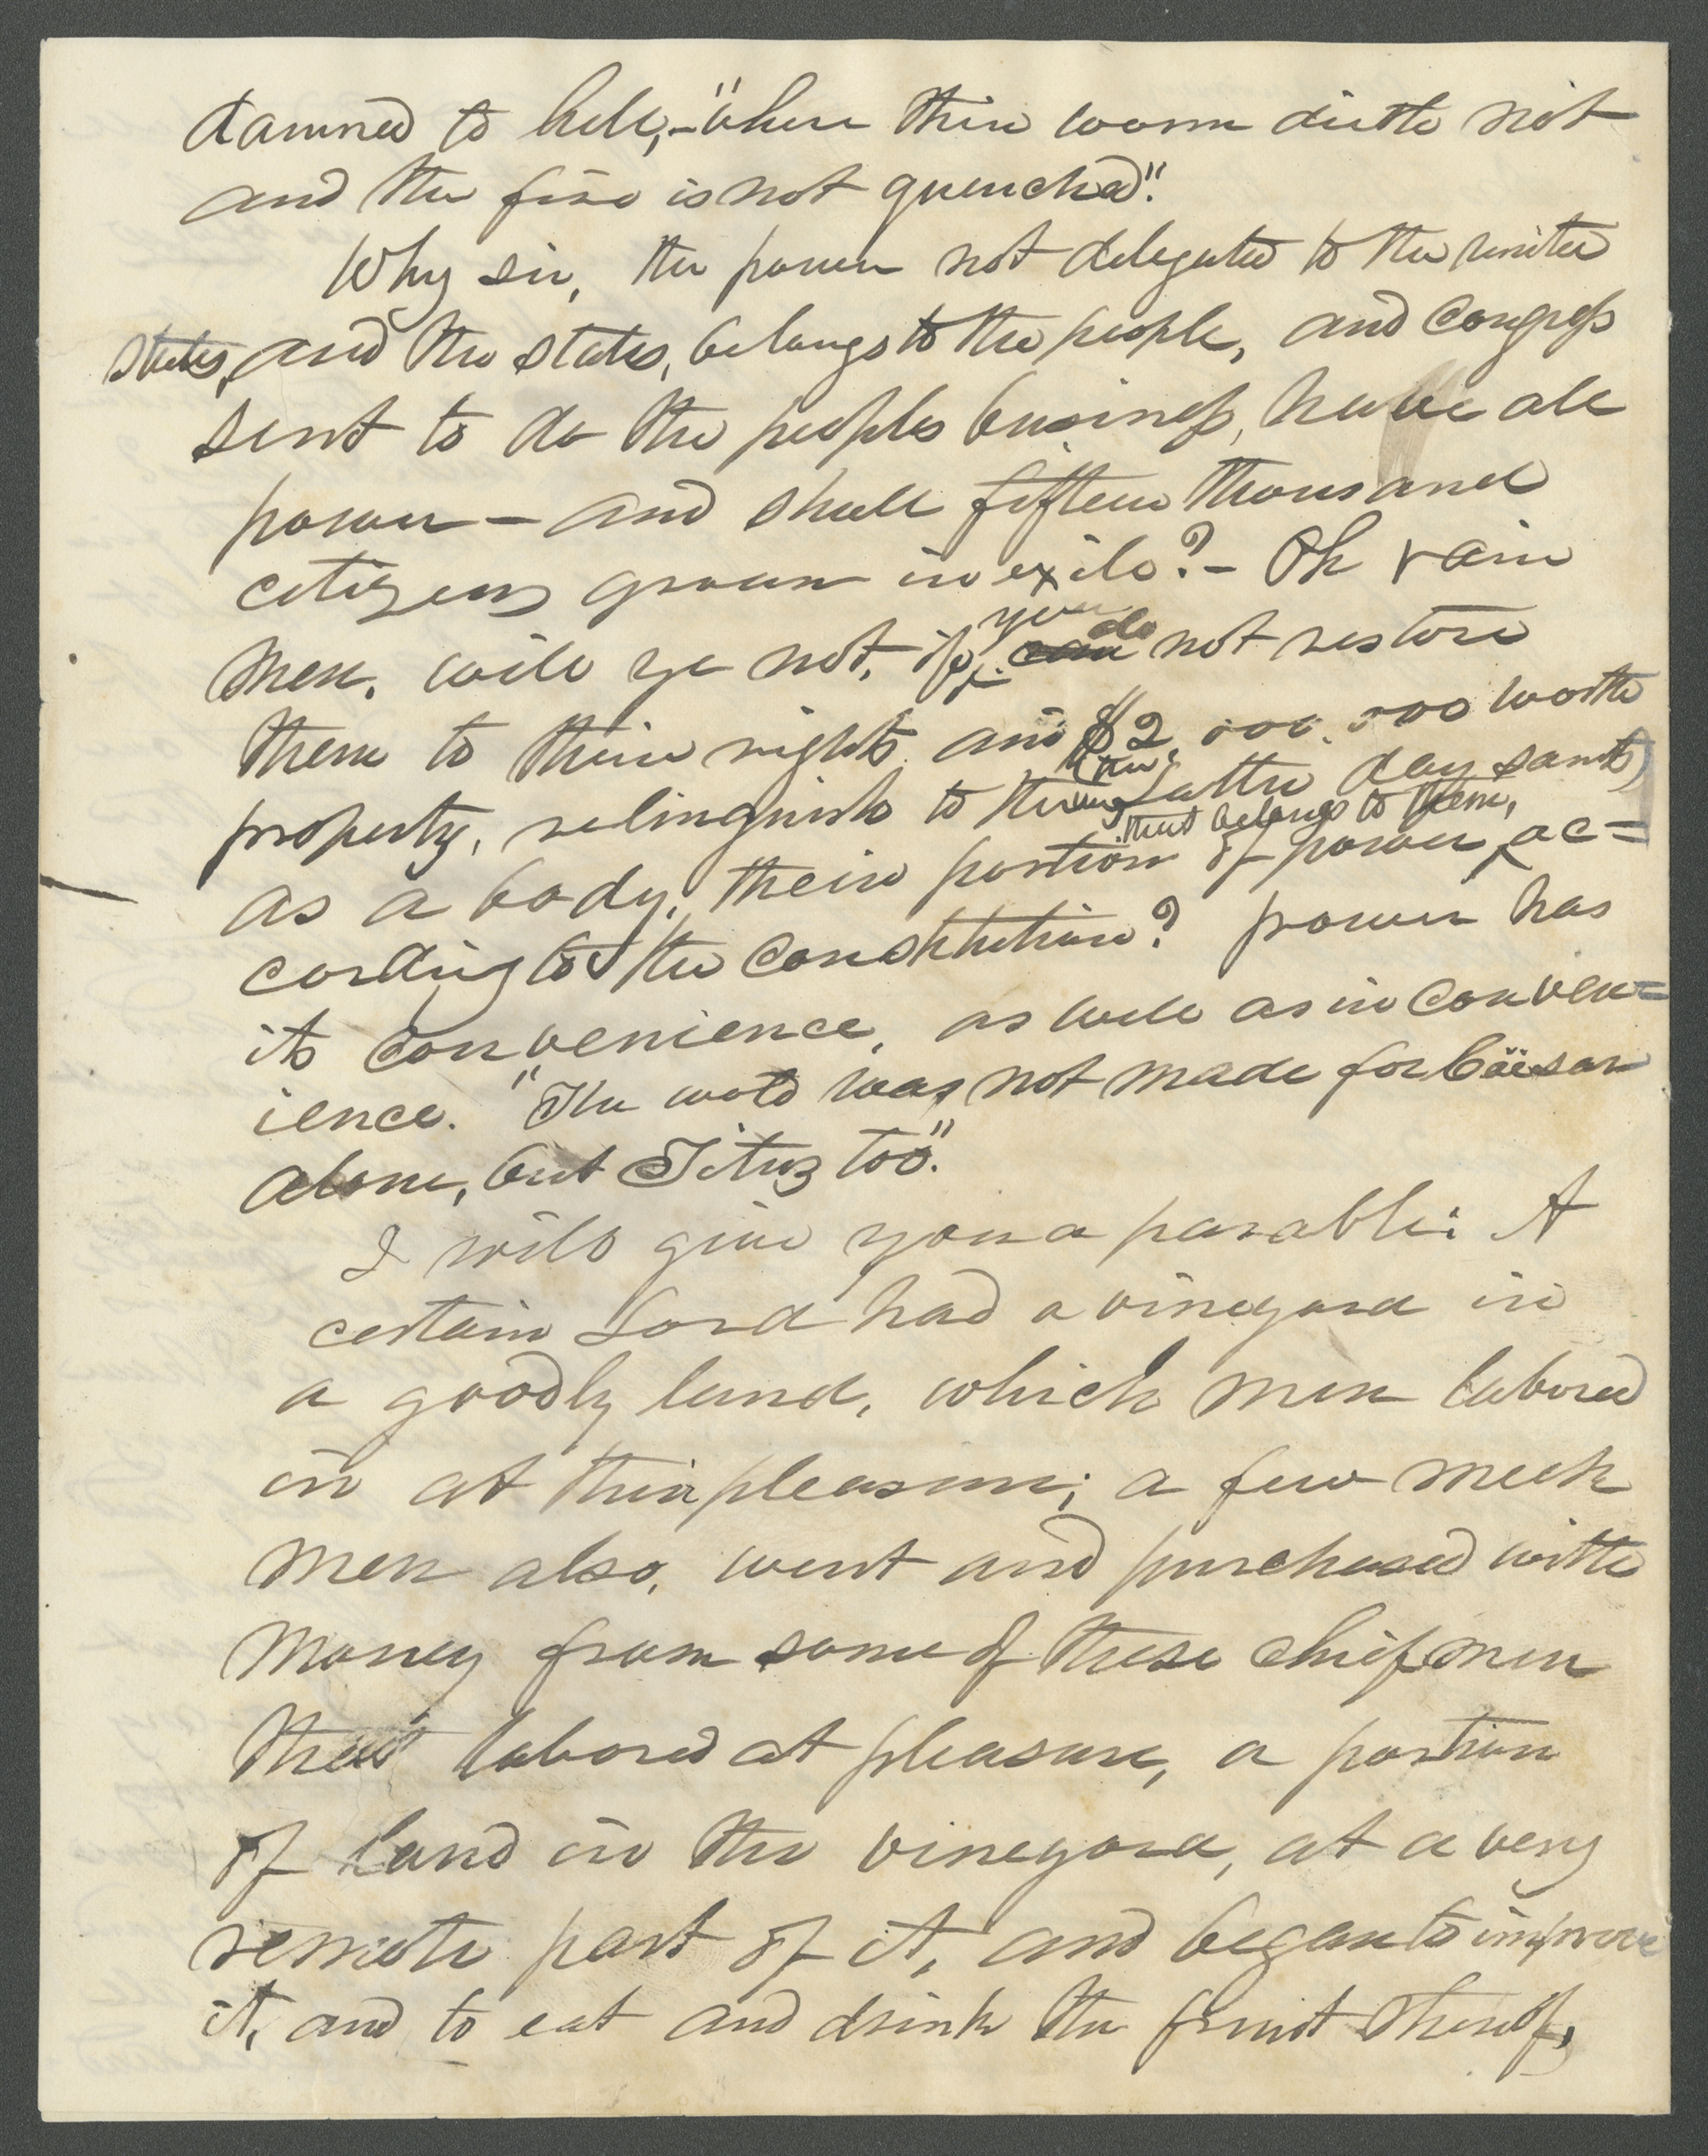 damned to hell,–"where their worm dieth not
and the fire is not quenched".
Why sir, the power not delegated to the united
states, and the states, belongs to the people, and congress
sent to do the peoples business, have all
power – and shall fifteen thousand
citizens groan in exile? – Oh vain
men, will ye not, if you do not restore
them to their rights and $2,000,000 worth
property, relinquish to them (the Latter day saints)
as a body, their portion of power that belongs to them, ac=
cording to the Constitution? power has
its convenience, as well as inconven=
ience. "The world was not made for Cäesar
alone, but Titus too".
I will give you a parable: A
certain Lord had a vineyard in
a goodly land, which men labored
in at their pleasure; a few meek
men also, went and purchased with
money from some of these chief men
that labored at pleasure, a portion
of land in the vineyard, at a very
remote part of it, and began to improve
it, and to eat and drink the fruit thereof,